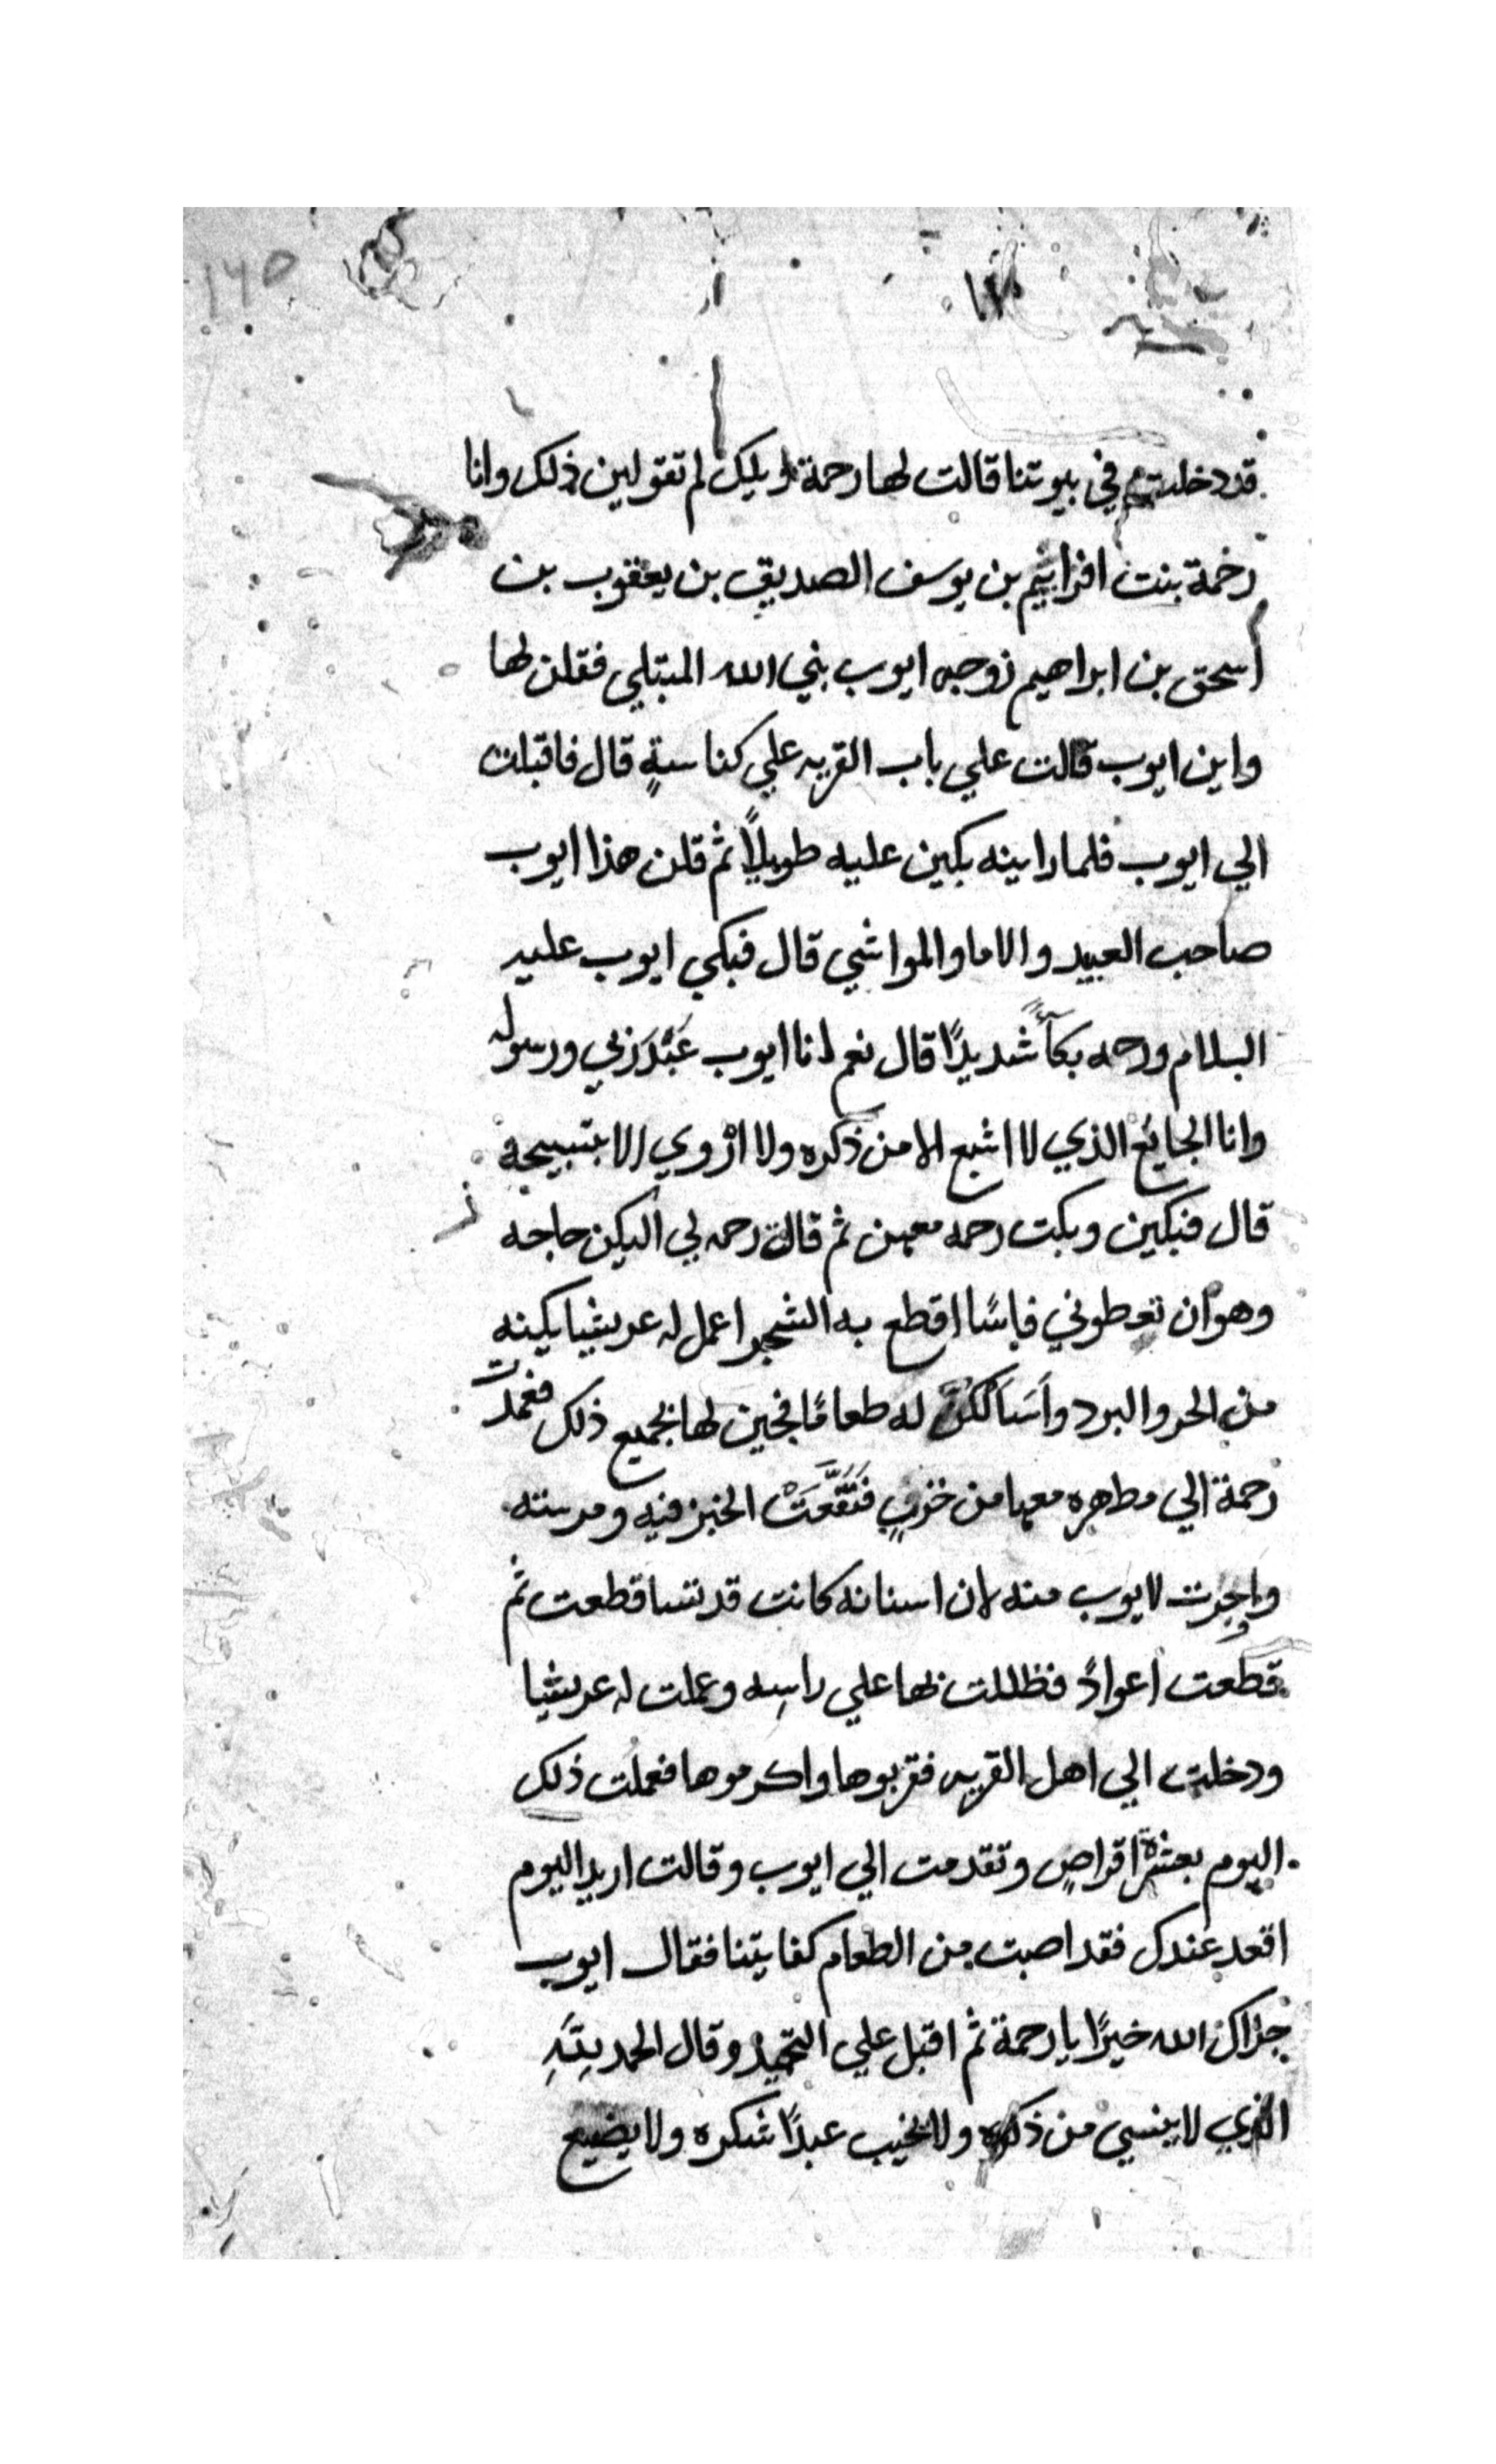 ١٢٥
قد دخلت في بيوتنا قالت لها رحمة ويليك لم تقولين ذلك وانا
رحمة بنت افراثيم بن يوسف الصديق بن يعقوب بن
اسحق بن ابراهيم زوجه ايوب نبي الله المبتلي فقلن لها
واين ايوب قالت علي باب القريه علي كناسةٍ قال فاقبلن
الي ايوب فلما راينه بكين عليه طويلاً ثم قلن هذا ايوب
صاحب العبيد والاما والمواشي قال فبكي ايوب عليه
السلام ورحمه بكاً شديدًا قال نعم انا ايوب عَبْدَ رَبي ورسوله
وانا الجايع الذي لا اشبع الا من ذكره ولا ارْوي الا بتسبيحه
قال فبكين وبكت رحمه معهن ثم قالت رحمه لي اليكن حاجه
وهو ان تعطوني فاسًا اقطع به الشجر اعمل له عريشا يكينه
من الحر والبرد واَسَالَكُنَّ له طعامًا فجين لها بجميع ذلك فعمدت
رحمة الي مطهره معها من خزفٍ فَنَقَّعَتْ الخبز فيه ومرسته
واوجرت لايوب منه لان اسنانه كانت قد تساقطعت ثم
قطعت اعوادً فظللت بها علي راسِه وعملت له عريشا
ودخلت الي اهل القريه فقربوها واكرموها فعملت ذلك
اليوم بعشرة اقراصٍ وتقدمت الي ايوب وقالت اريد اليوم
اقعد عندك فقد اصبت من الطعام كفايتنا فقال ايوب
جزاك الله خيرًا يا رحمة ثم اقبل علي التحميد وقال الحمد لِلَّهِ
الذي لا ينسي من ذكره ولا يخيب عبدًا شكره ولا يضيع